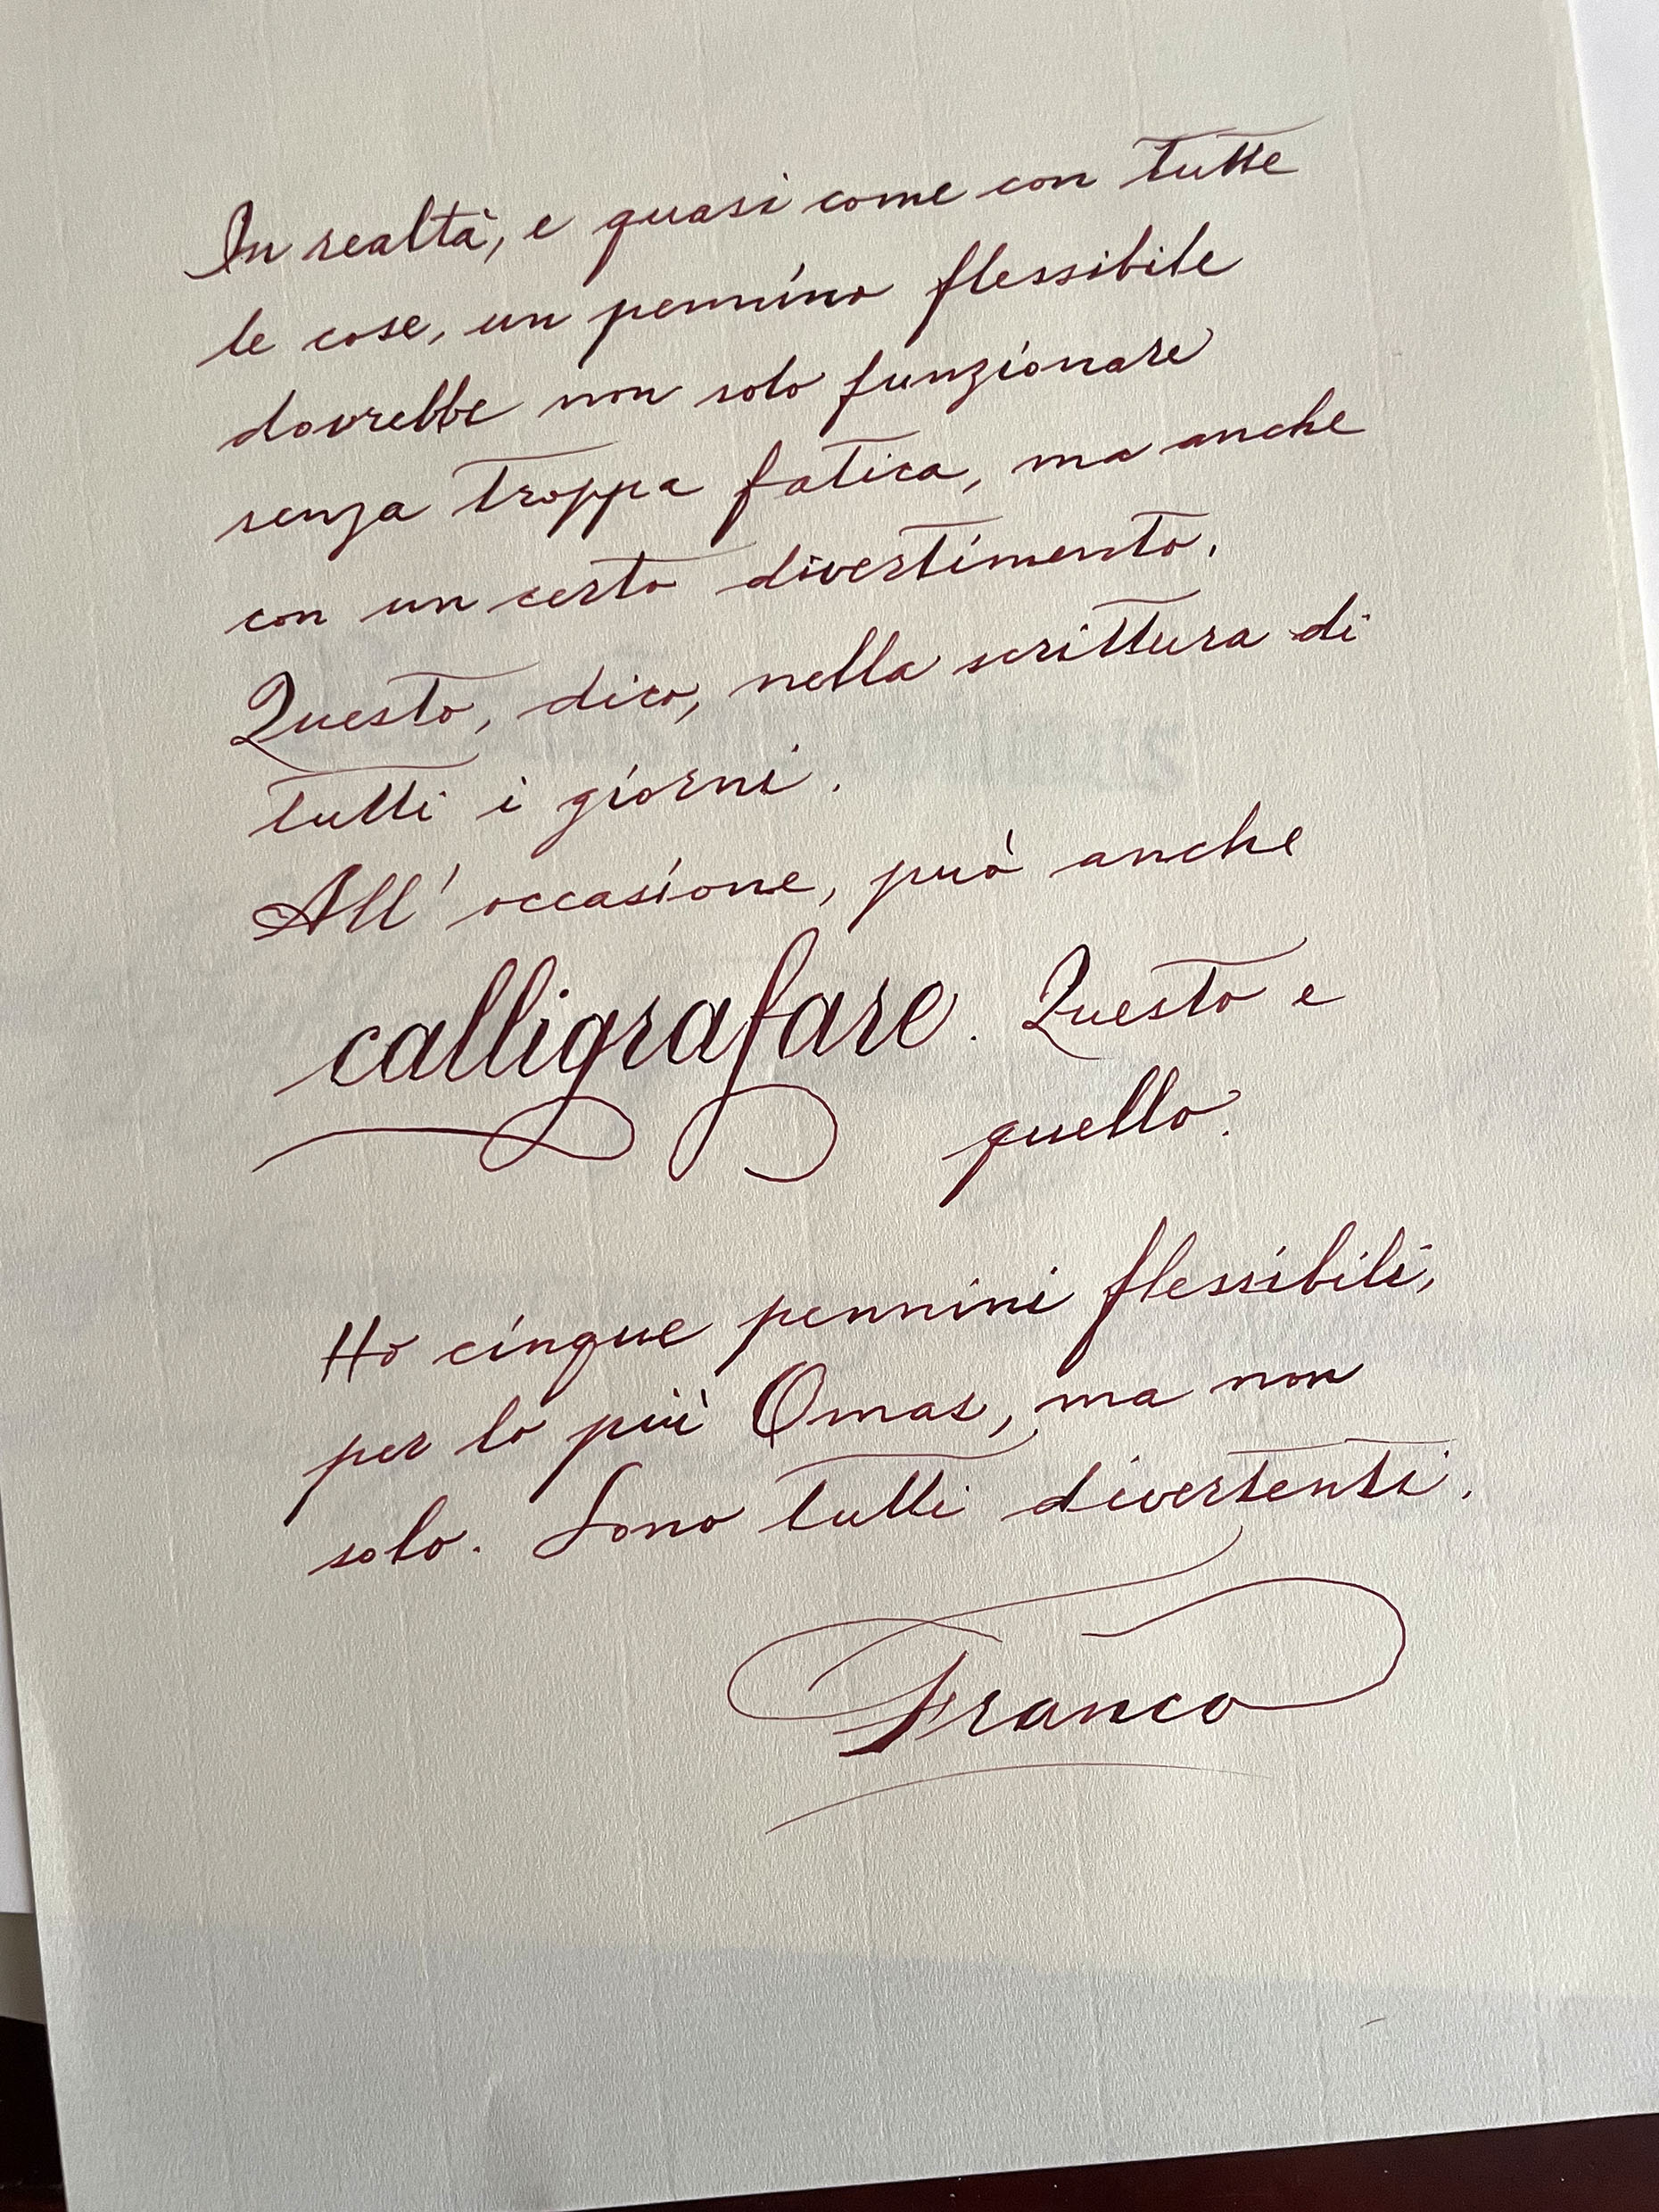 In realtà, e quasi come con tutte
le cose, un pennino flessibile
dovrebbe non solo funzionare
senza troppa fatica, ma anche
con un certo divertimento.
Questo, dico, nella scrittura di
tutti i giorni.
All' occasione, può anche
calligrafare. Questo e
quello.
Ho cinque pennini flessibili,
per lo più Omas, ma non
solo. Sono tutti divertenti.
Franco